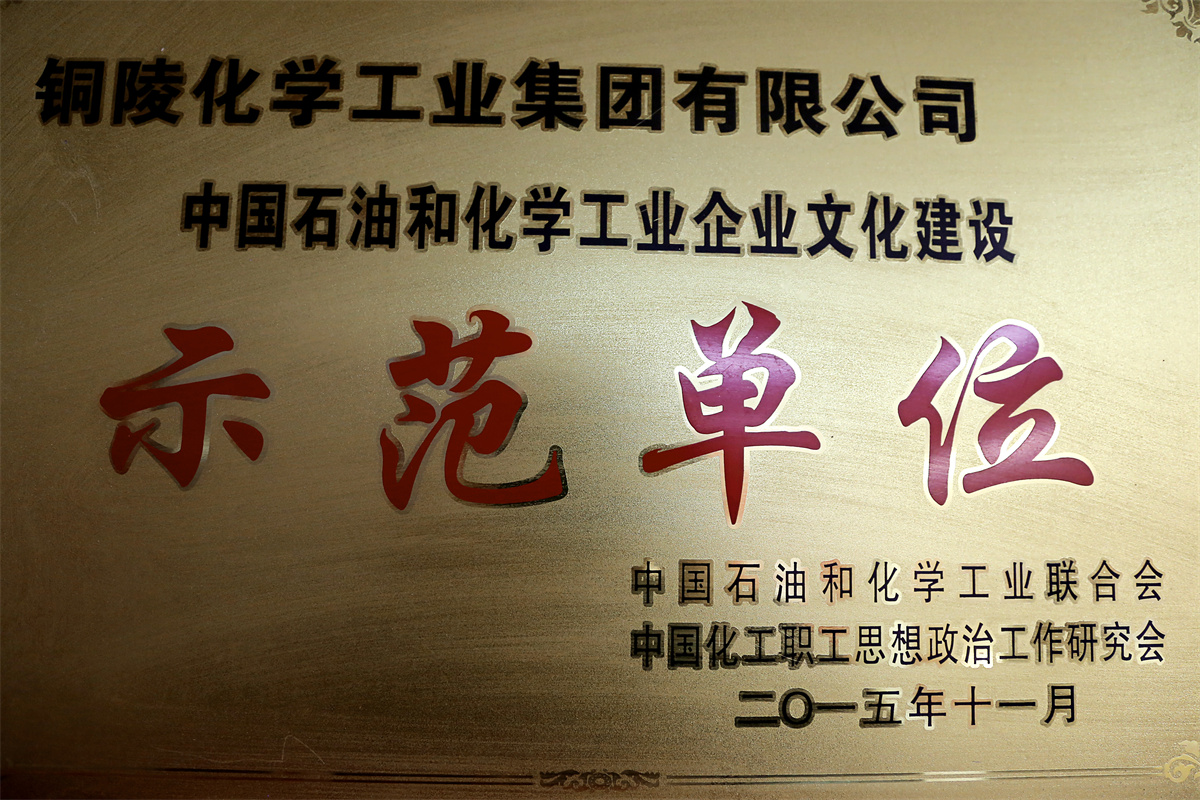 铜陵化学工业集团有限公司
中国石油和化学工业企业文化建设
示范单位
中国石油和化学工业联合会
中国化工职工思想政治工作研究会
二〇一五年十一月